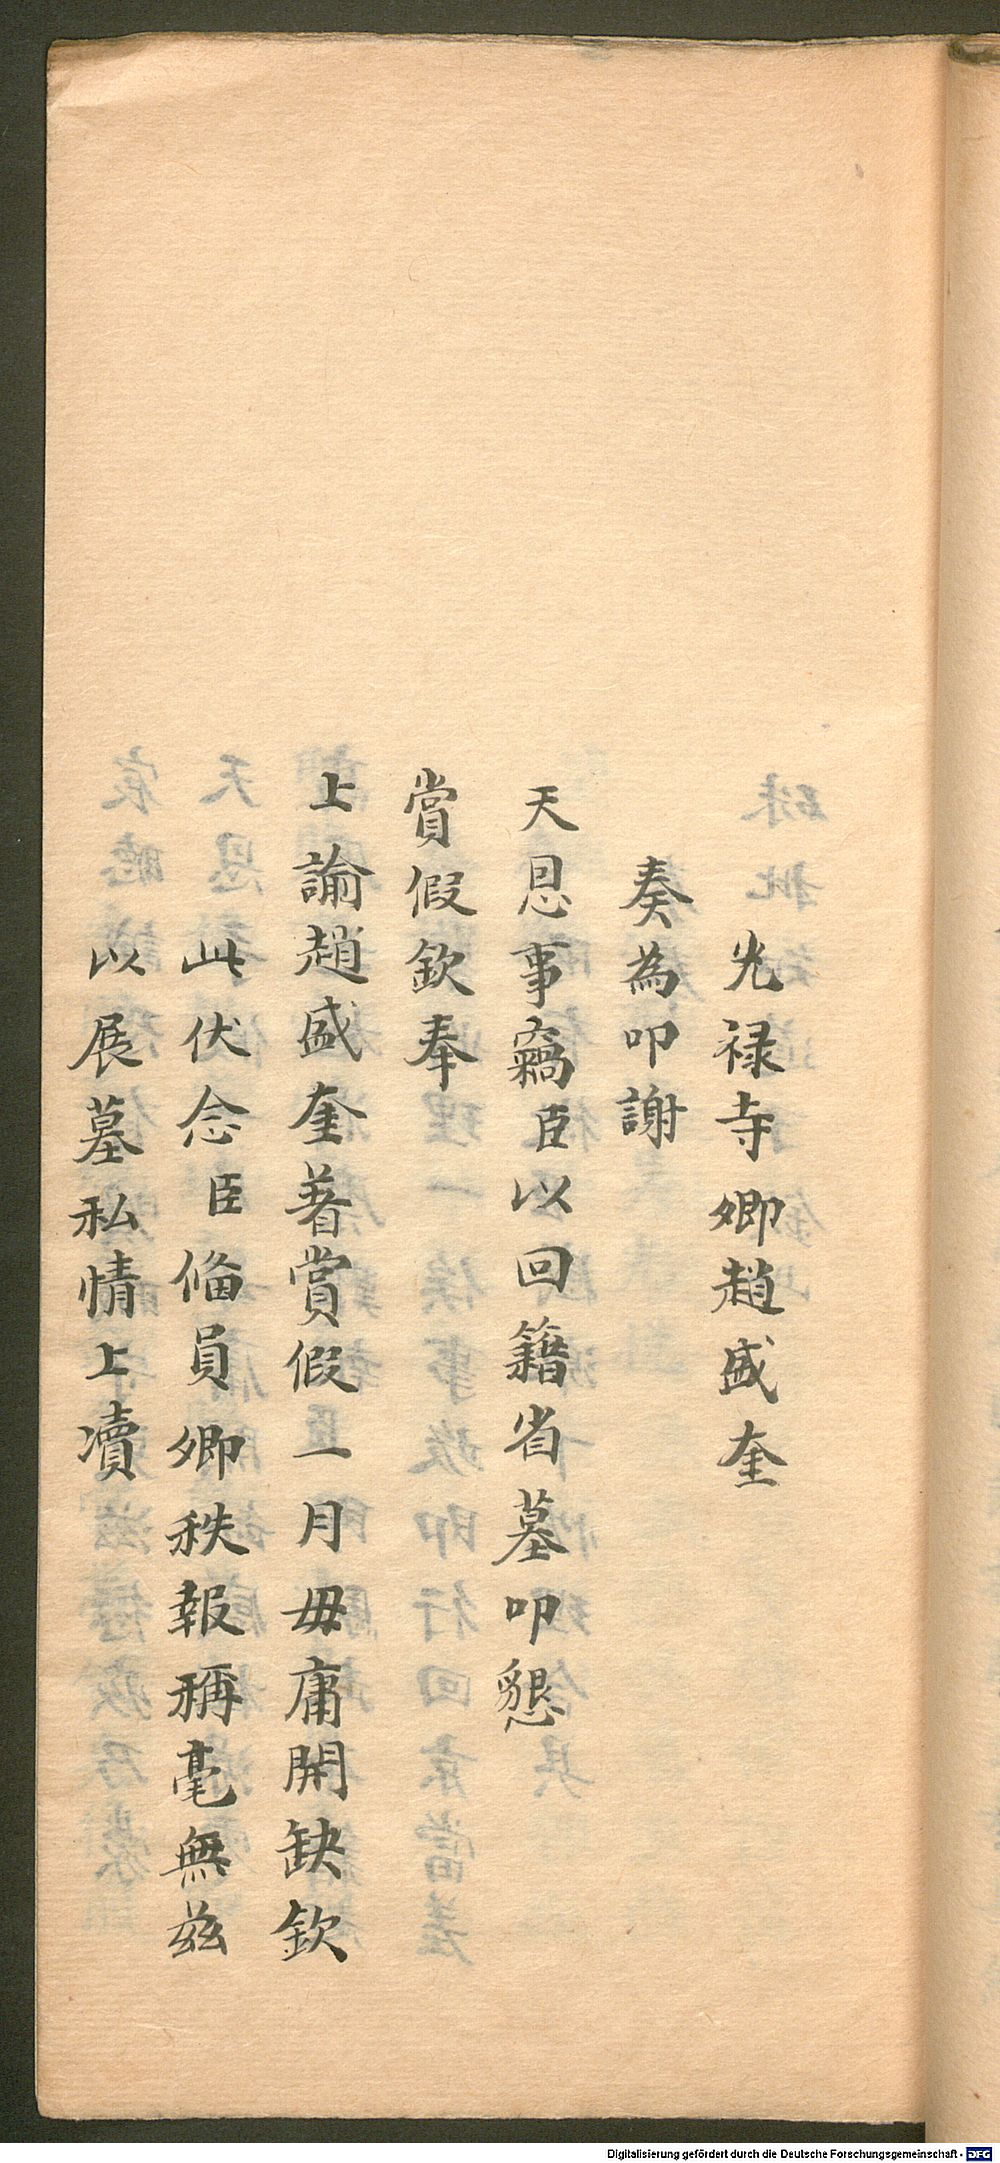 光禄寺卿趙盛奎
奏為叩謝
天恩事竊臣以回籍省墓叩懇
賞假欽奉
上諭趙盛奎著賞假一月毋庸開缺欽
此伏念臣備員卿秩報稱毫無兹
以展墓私情上瀆
Digitalisierung gefördert durch die Deutsche Forschungsgemeinschaft - DFG